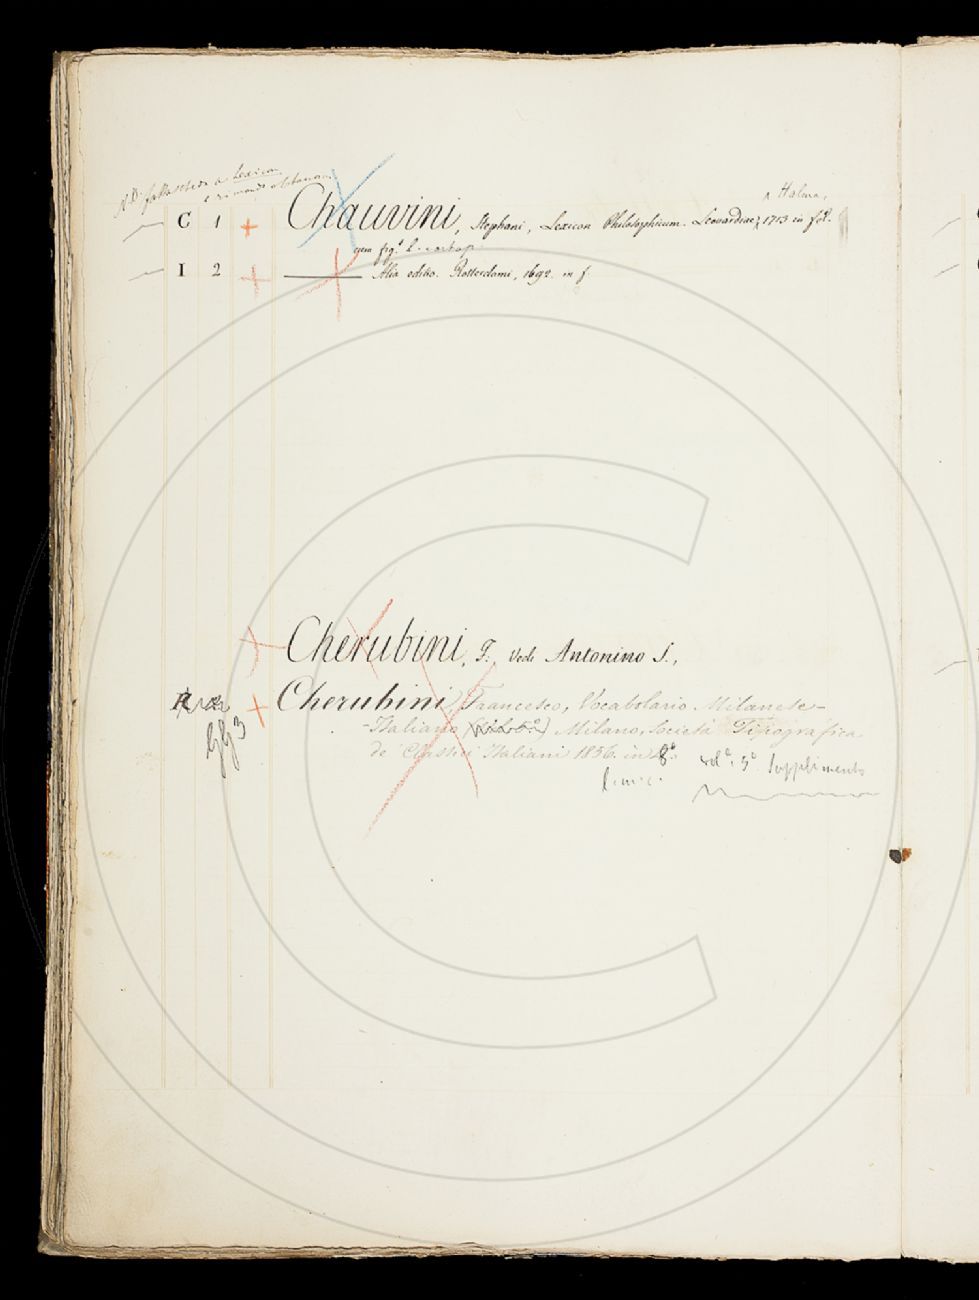 ND. fatta scheda a Lexicon
e rimando a
Halma,
C 1 + Chauvini, Stephani, Lexicon Philosophicum. Leovardiae, 1713 in fol.
cum fig.
I 2 + Alia editio. Rotterdami, 1692. in f
Cherubini, F. Vedi Antonino S.,
+ Cherubini, Francesco, Vocabolario Milanese-
-Italiano Milano, Società Tipografica
de' Classici Italiani 1836. in 8°. vol. 5° Supplimento
GG 3